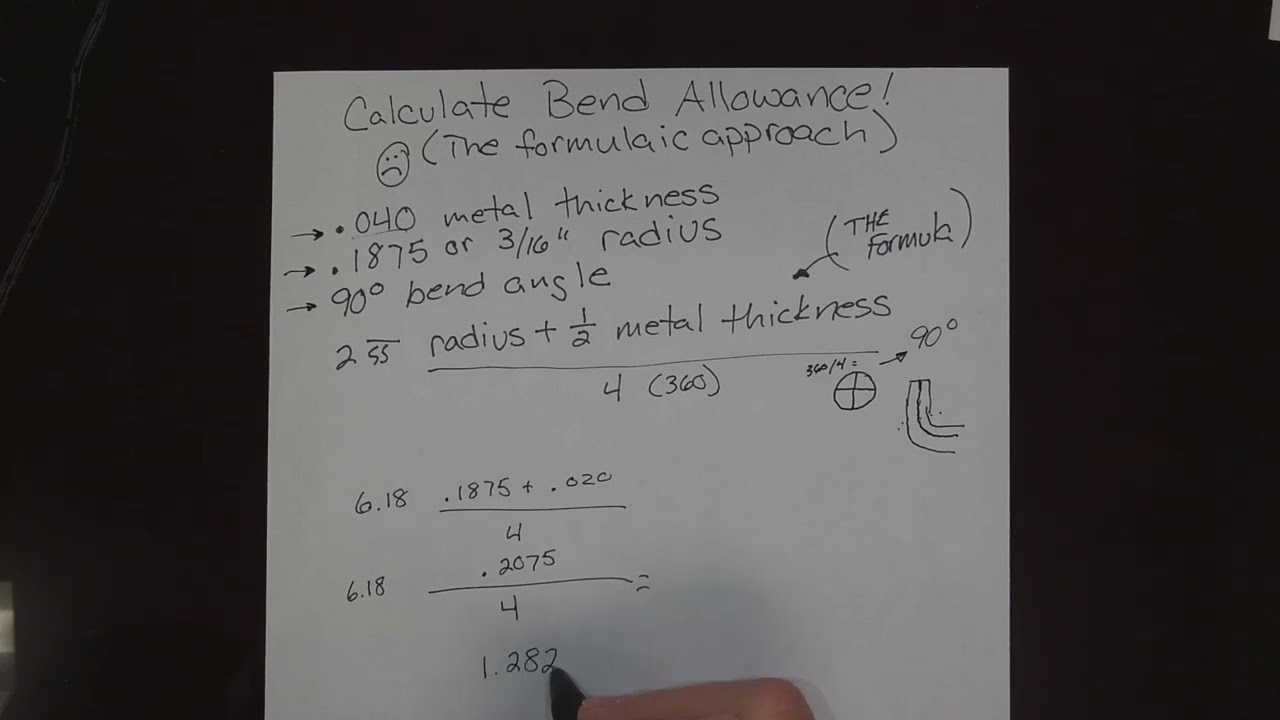 Calculate Bend Allowance!
(The formulaic approach)
→ .040 metal thickness
→ .1875 or 3/16" radius
→ 90° bend angle
(THE formula)
2π radius + 1/2 metal thickness
4 (360)
360/4 = → 90°
6.18 .1875 + .020
4
6.18 .2075 =
4
1.282